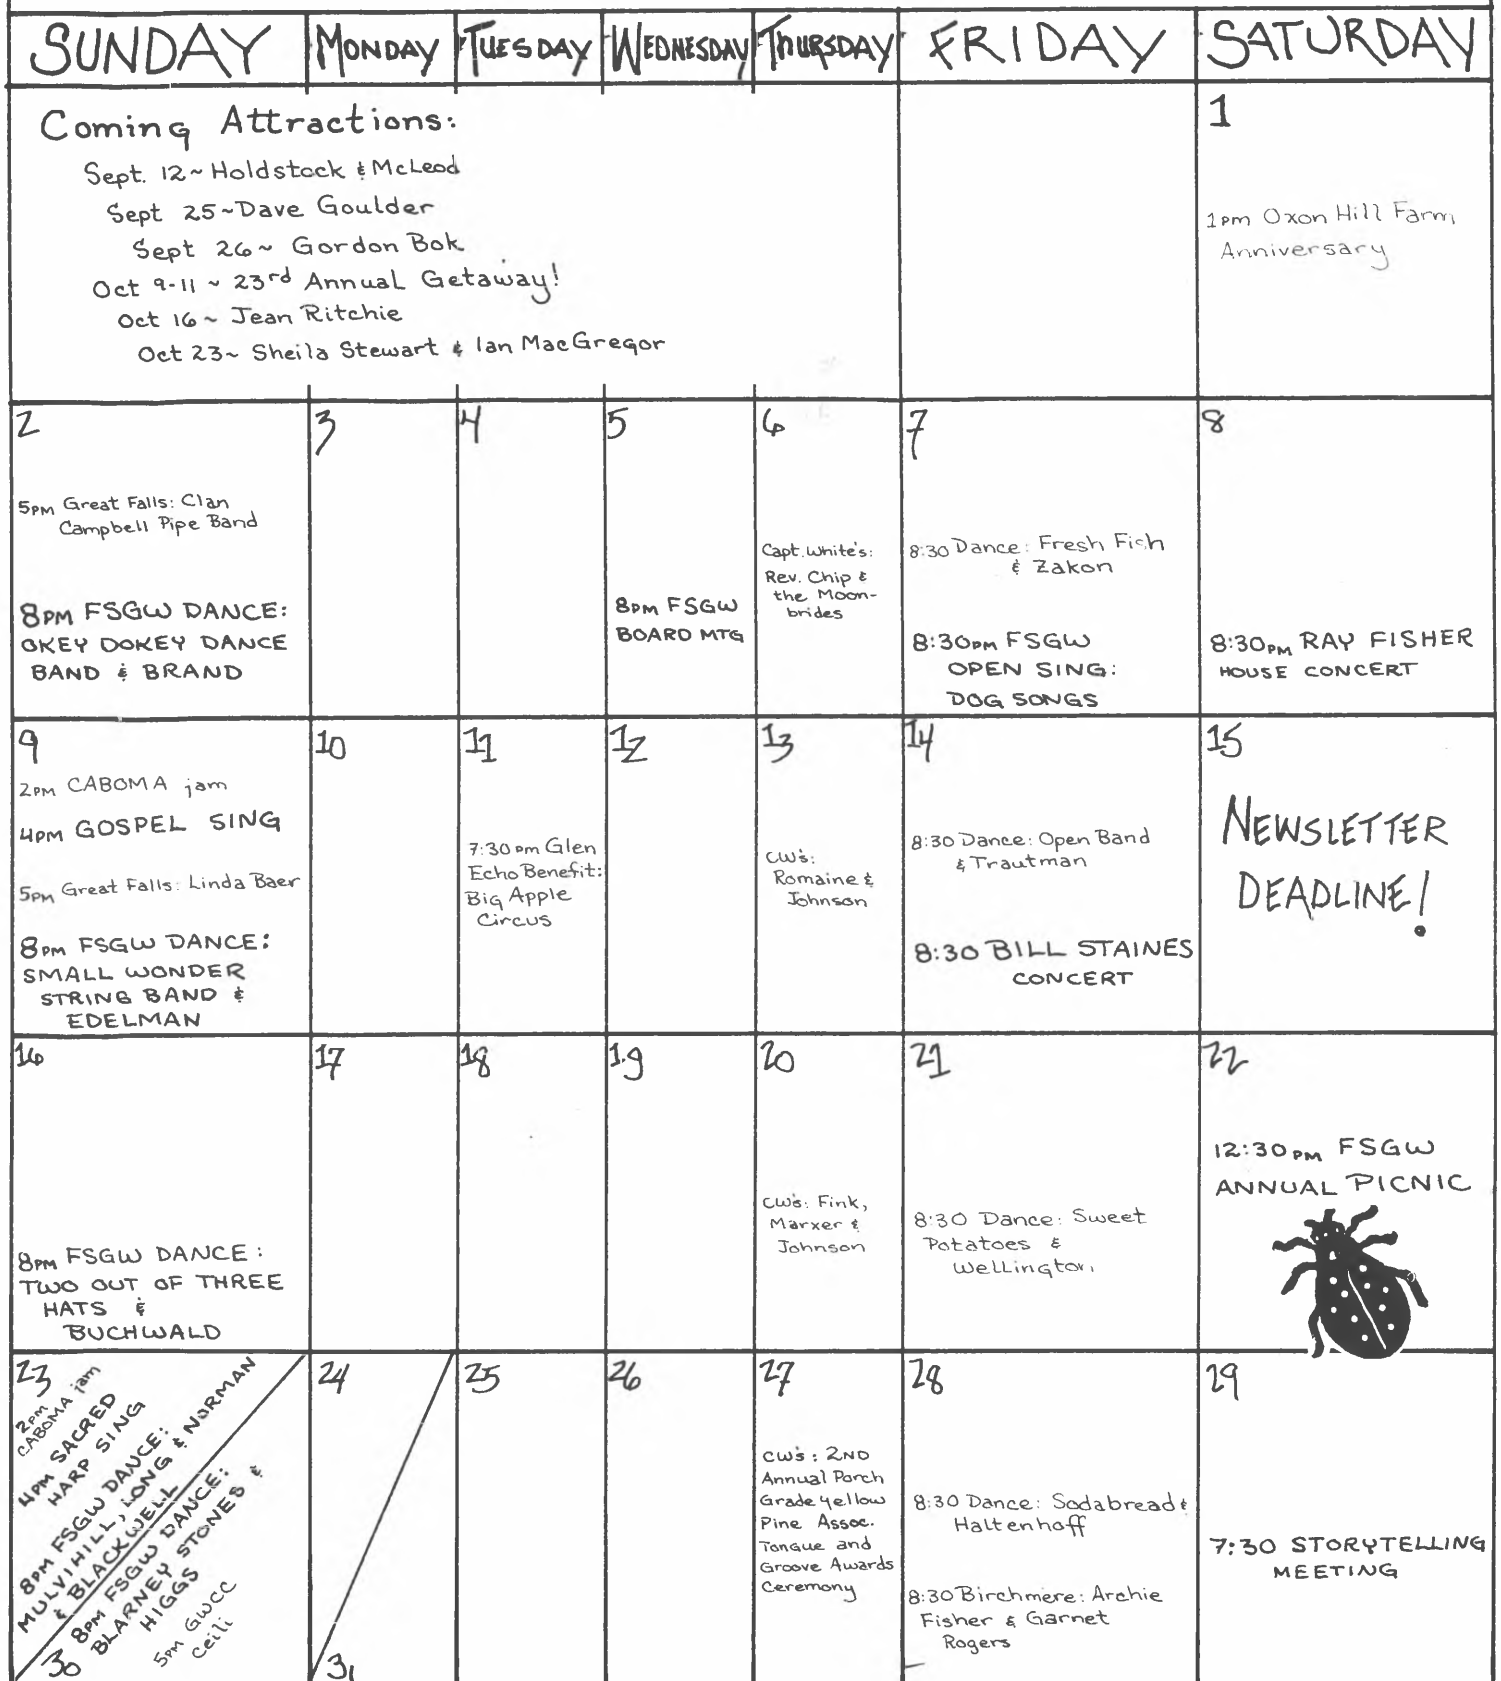 SUNDAY MONDAY TUESDAY WEDNESDAY THURSDAY FRIDAY SATURDAY
Coming Attractions:
Sept. 12~ Holdstock & McLeod
Sept 25~Dave Goulder
Sept 26~ Gordon Bok
Oct 9-11 ~ 23rd Annual Getaway!
Oct 16~ Jean Ritchie
Oct 23~ Sheila Stewart & Ian MacGregor
1
1pm Oxon Hill Farm
Anniversary
2
5PM Great Falls: Clan
Campbell Pipe Band
8PM FSGW DANCE:
OKEY DOKEY DANCE
BAND & BRAND
3
4
5
8PM FSGW
BOARD MTG
6
Capt. White's:
Rev. Chip &
the Moon-
brides
7
8:30 Dance: Fresh Fish
& Zakon
8:30pm FSGW
OPEN SING:
DOG SONGS
8
8:30pm RAY FISHER
HOUSE CONCERT
9
2PM CABOMA jam
4PM GOSPEL SING
5PM Great Falls: Linda Baer
8PM FSGW DANCE:
SMALL WONDER
STRING BAND &
EDELMAN
10
11
7:30pm Glen
Echo Benefit:
Big Apple
Circus
12
13
CW's:
Romaine &
Johnson
14
8:30 Dance: Open Band
& Trautman
8:30 BILL STAINES
CONCERT
15
NEWSLETTER
DEADLINE!
16
8PM FSGW DANCE:
TWO OUT OF THREE
HATS &
BUCHWALD
17
18
19
20
CW's: Fink,
Marxer &
Johnson
21
8:30 Dance: Sweet
Potatoes &
Wellington
22
12:30PM FSGW
ANNUAL PICNIC
23
2PM
CABOMA jam
4PM SACRED
HARP SING
8PM FSGW DANCE:
MULVIHILL, LONG & NORMAN
& BLACKWELL
30
8PM FSGW DANCE:
BLARNEY STONES &
HIGGS
5PM GWCC
Ceili
24
31
25
26
27
CW's: 2ND
Annual Porch
Grade Yellow
Pine Assoc.
Tongue and
Groove Awards
Ceremony
28
8:30 Dance: Sodabread &
Haltenhoff
8:30 Birchmere: Archie
Fisher & Garnet
Rogers
29
7:30 STORYTELLING
MEETING